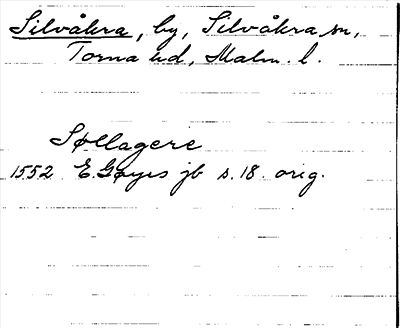 Silvåkra, by, Silvåkra sn,
Torna hd, Malm. l.
Søllagere
1552 E. Gøyes jb s. 18 orig.